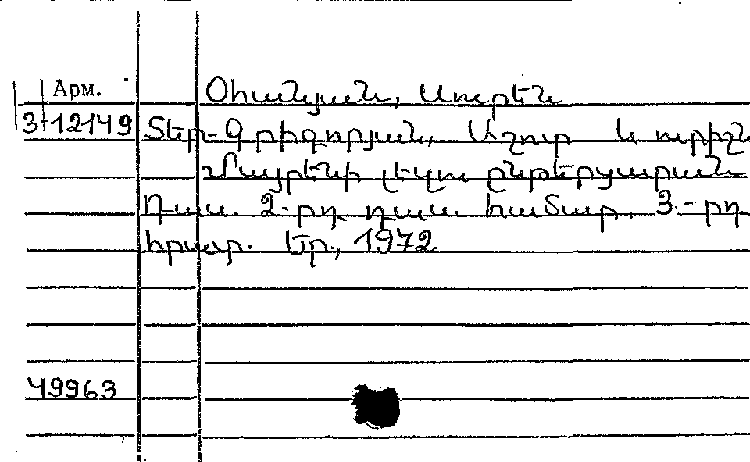 Арм.
Օհանյան, Սուրեն
3-12149 Տեր-Գրիգորյան, Աշոտ և ուրիշն
Մայրենի լեզու ընթերցարան
Դաս. 2-րդ դաս. համար. 3-րդ
հրատ. Եր., 1972
49963